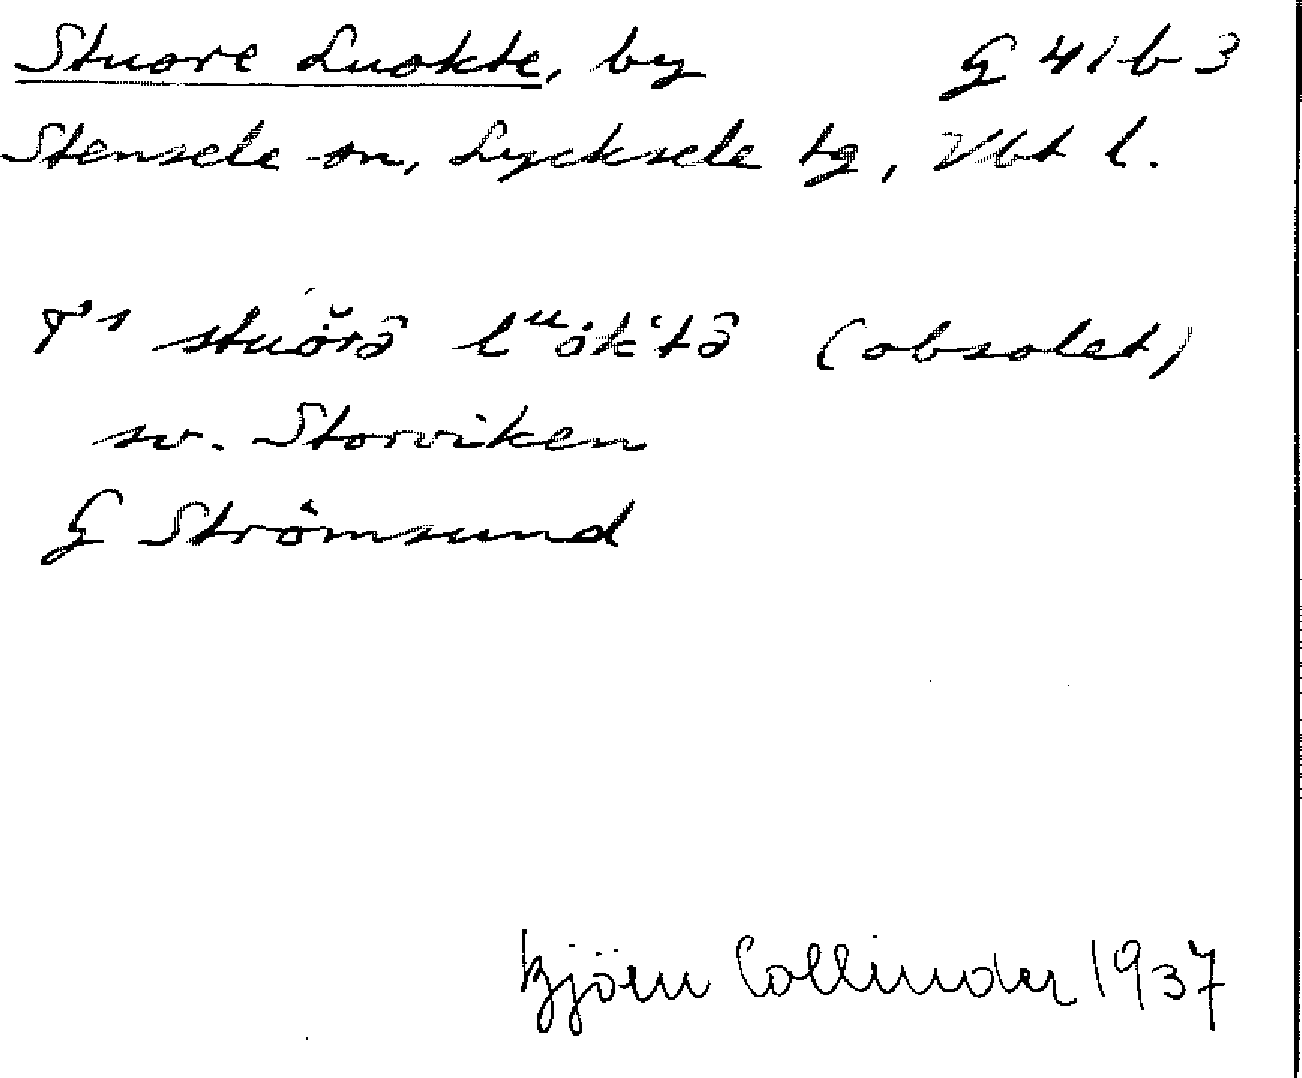 Stuore Luokte, by G 41 b 3
Stensele sn, Lycksele tg, Vbt l.
stuŏrə̂ lᵘòk'tə̂ (obsolet)
sv. Storviken
G Strömsund
Björn Collinder 1937